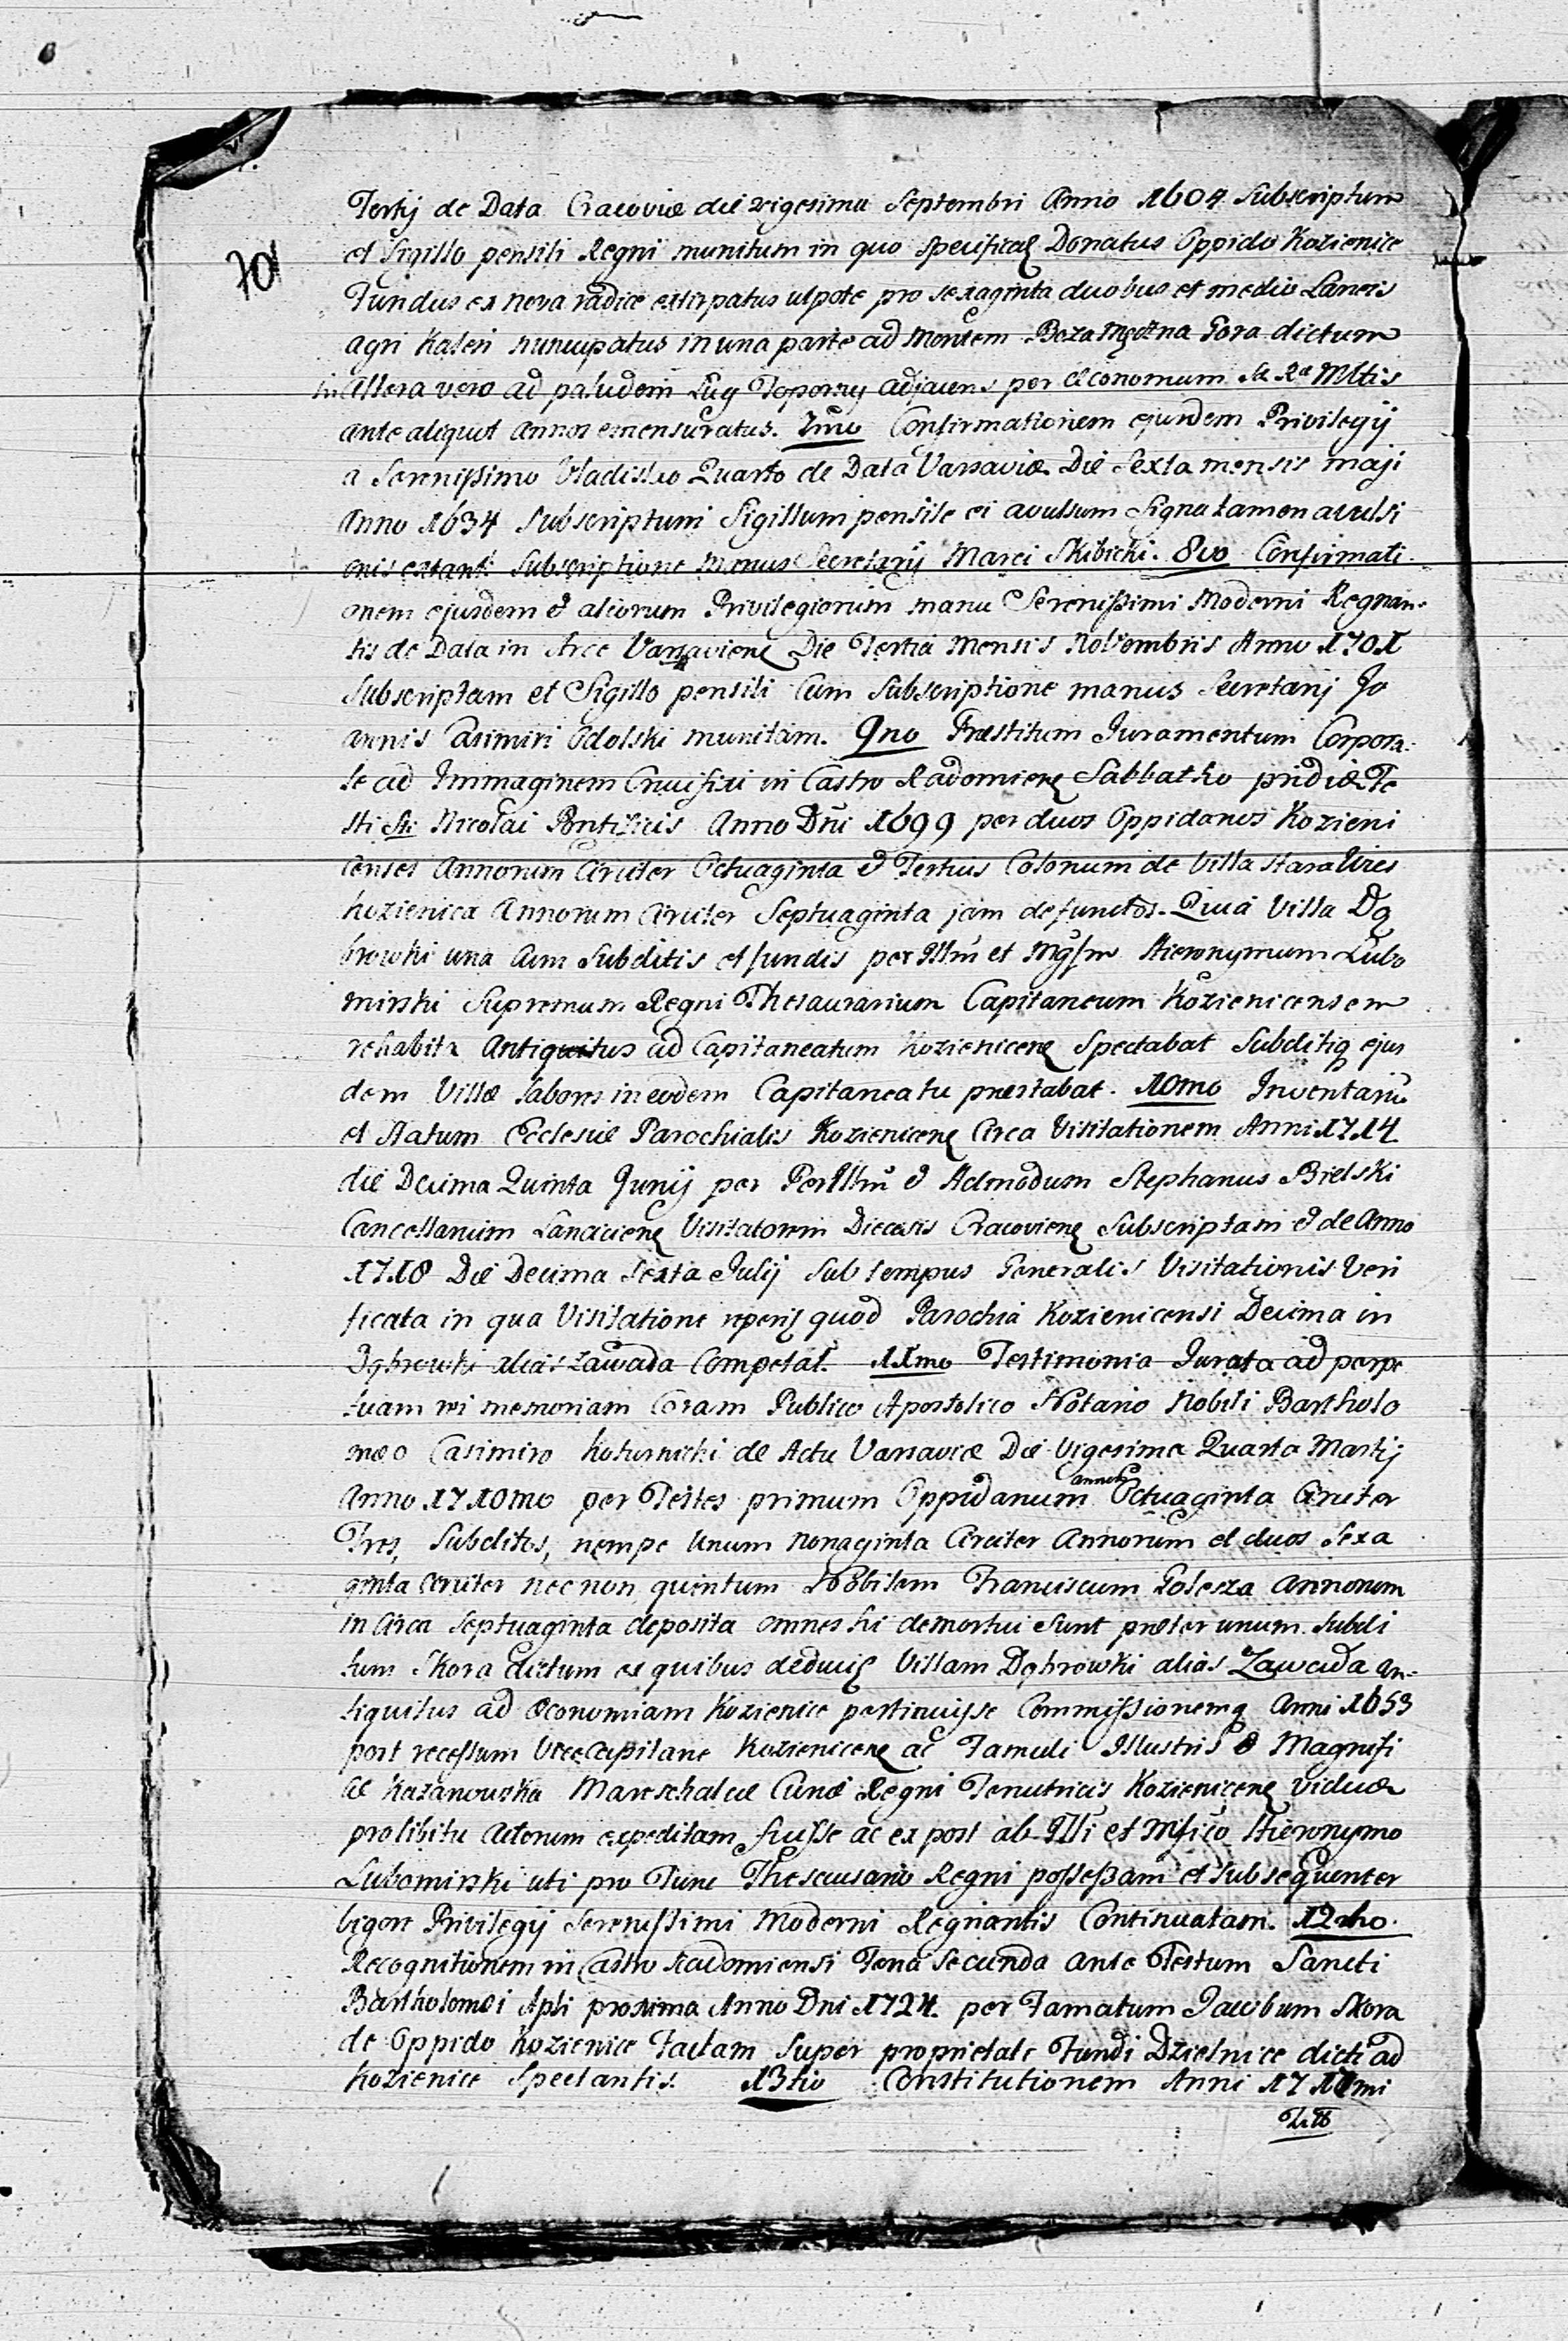 Tertij de Data Cracoviæ die vigesima Septembri Anno 1604 Subscriptum
et Sigillo pensili Regni munitum in quo specificaʒ Donatus Oppido Kozienice
Fundus ex nova radice extirpatus utpote pro sexaginta duobus et medio Laneis
agri Kaleń nuncupatus in una parte ad Montem Boza Męczna Gora dictum
in Altera vero ad paludem Ług Toporny adjacens per Œconomum Sæ Ræ Mttis
ante aliquot annos emensuratus. 7mo Confirmationem ejusdem Privilegij
a Serenissimo Vladislao Quarto de Data Varsaviæ Die Sexta mensis maji
Anno 1634 Subscriptum Sigillum pensile ei avulsum Signa tamen avulsi
onis extant Subscriptione manus Secretarij Marci Skibicki. 8vo Confirmati
onem ejusdem & aliorum Privilegiorum manu Serenissimi Moderni Regnan-
tis de Data in Arce Varsavienʒ Die Tertia Mensis Novembris Anno 1701
Subscriptam et Sigillo pensili Cum Subscriptione manus Secretarij Jo
annis Casimiri Odolski munitam. 9no Præstitum Juramentum Corpora-
le ad Immaginem Crucifixi in Castro Radomienʒ Sabbatho pridiæ Fe
sti Sti Nicolai Pontificis Anno Dni 1699 per duos Oppidanos Kozieni
censes Annorum Circiter Octuaginta & Tertius Colonum de Villa Stara Wies
kozienica Annorum Circiter Septuaginta jam defunctos. Quia Villa Dą
browki una Cum Subditis et fundis per Illm et Mgfm Hieronymum Lubo
mirski Supremum Regni Thesaurarium Capitaneum Kozienicensem
rehabita Antiquitus ad Capitaneatum Kozienicenʒ Spectabat Subditiq ejus
dem Villæ labores in eodem Capitaneatu præstabat. 10mo Inventariu
et Statum Ecclesiæ Parochialis Kozienicenʒ Circa Visitationem Anni 1714
die Decima Quinta Junij per PerIllm & Admodum Stephanus Bielski
Cancellarium Lancicienʒ Visitatorem Diecæsis Cracovienʒ Subscriptam & de Anno
1718 Die Decima Sexta Julij Sub tempus Generalis Visitationis Veri
ficata in qua Visitatione reperiʒ quod Parochiæ Kozienicensi Decima in
Dąbrowki alias Zawada Competat. 11mo Testimonia Jurata ad perpe
tuam rei memoriam Coram Publico Apostolico Notario Nobili Bartholo
mæo Casimiro Koturnicki de Actu Varsaviæ Die Vigesima Quarta Martij
Anno 1710mo per Testes primum Oppidanum annor Octuaginta Circiter
Tres, Subditos, nempe Unum nonaginta Circiter Annorum et duos Sexa
ginta Circiter nec non quintum Nobilem Franciscum Golesza Annorum
in Circa Septuaginta deposita omnes hi demortui Sunt præter unum Subdi
tum Skora dictum ex quibus deduciʒ Villam Dąbrowki alias Zawada an-
tiquitus ad Œconomiam Kozienice pertinuisse Commissionemq Anni 1653
post recessum Vicecapitane Kozienicenʒ ac Famuli Illustris & Magnifi
cæ Kazanowska Mareschalcæ Curiæ Regni Tenutricis Kozienicenʒ Viduæ
pro libitu Actorum expeditam fuisse ac ex post ab Illi et Mfico Hieronymo
Lubomirski uti pro Tunc Thesaurario Regni possessam et Subsequenter
vigore Privilegij Serenissimi Moderni Regnantis Continuatam. 12mo.
Recognitionem in Castro Radomiensi Feria Secunda ante Festum Sancti
Bartholomæi Apli proxima Anno Dni 1724. per Famatum Jacobum Skora
de Oppido Kozienice Factam Super proprietate Fundi Dzielnice dicti ad
Kozienice Spectantis. 13tio Constitutionem Anni 1710mi